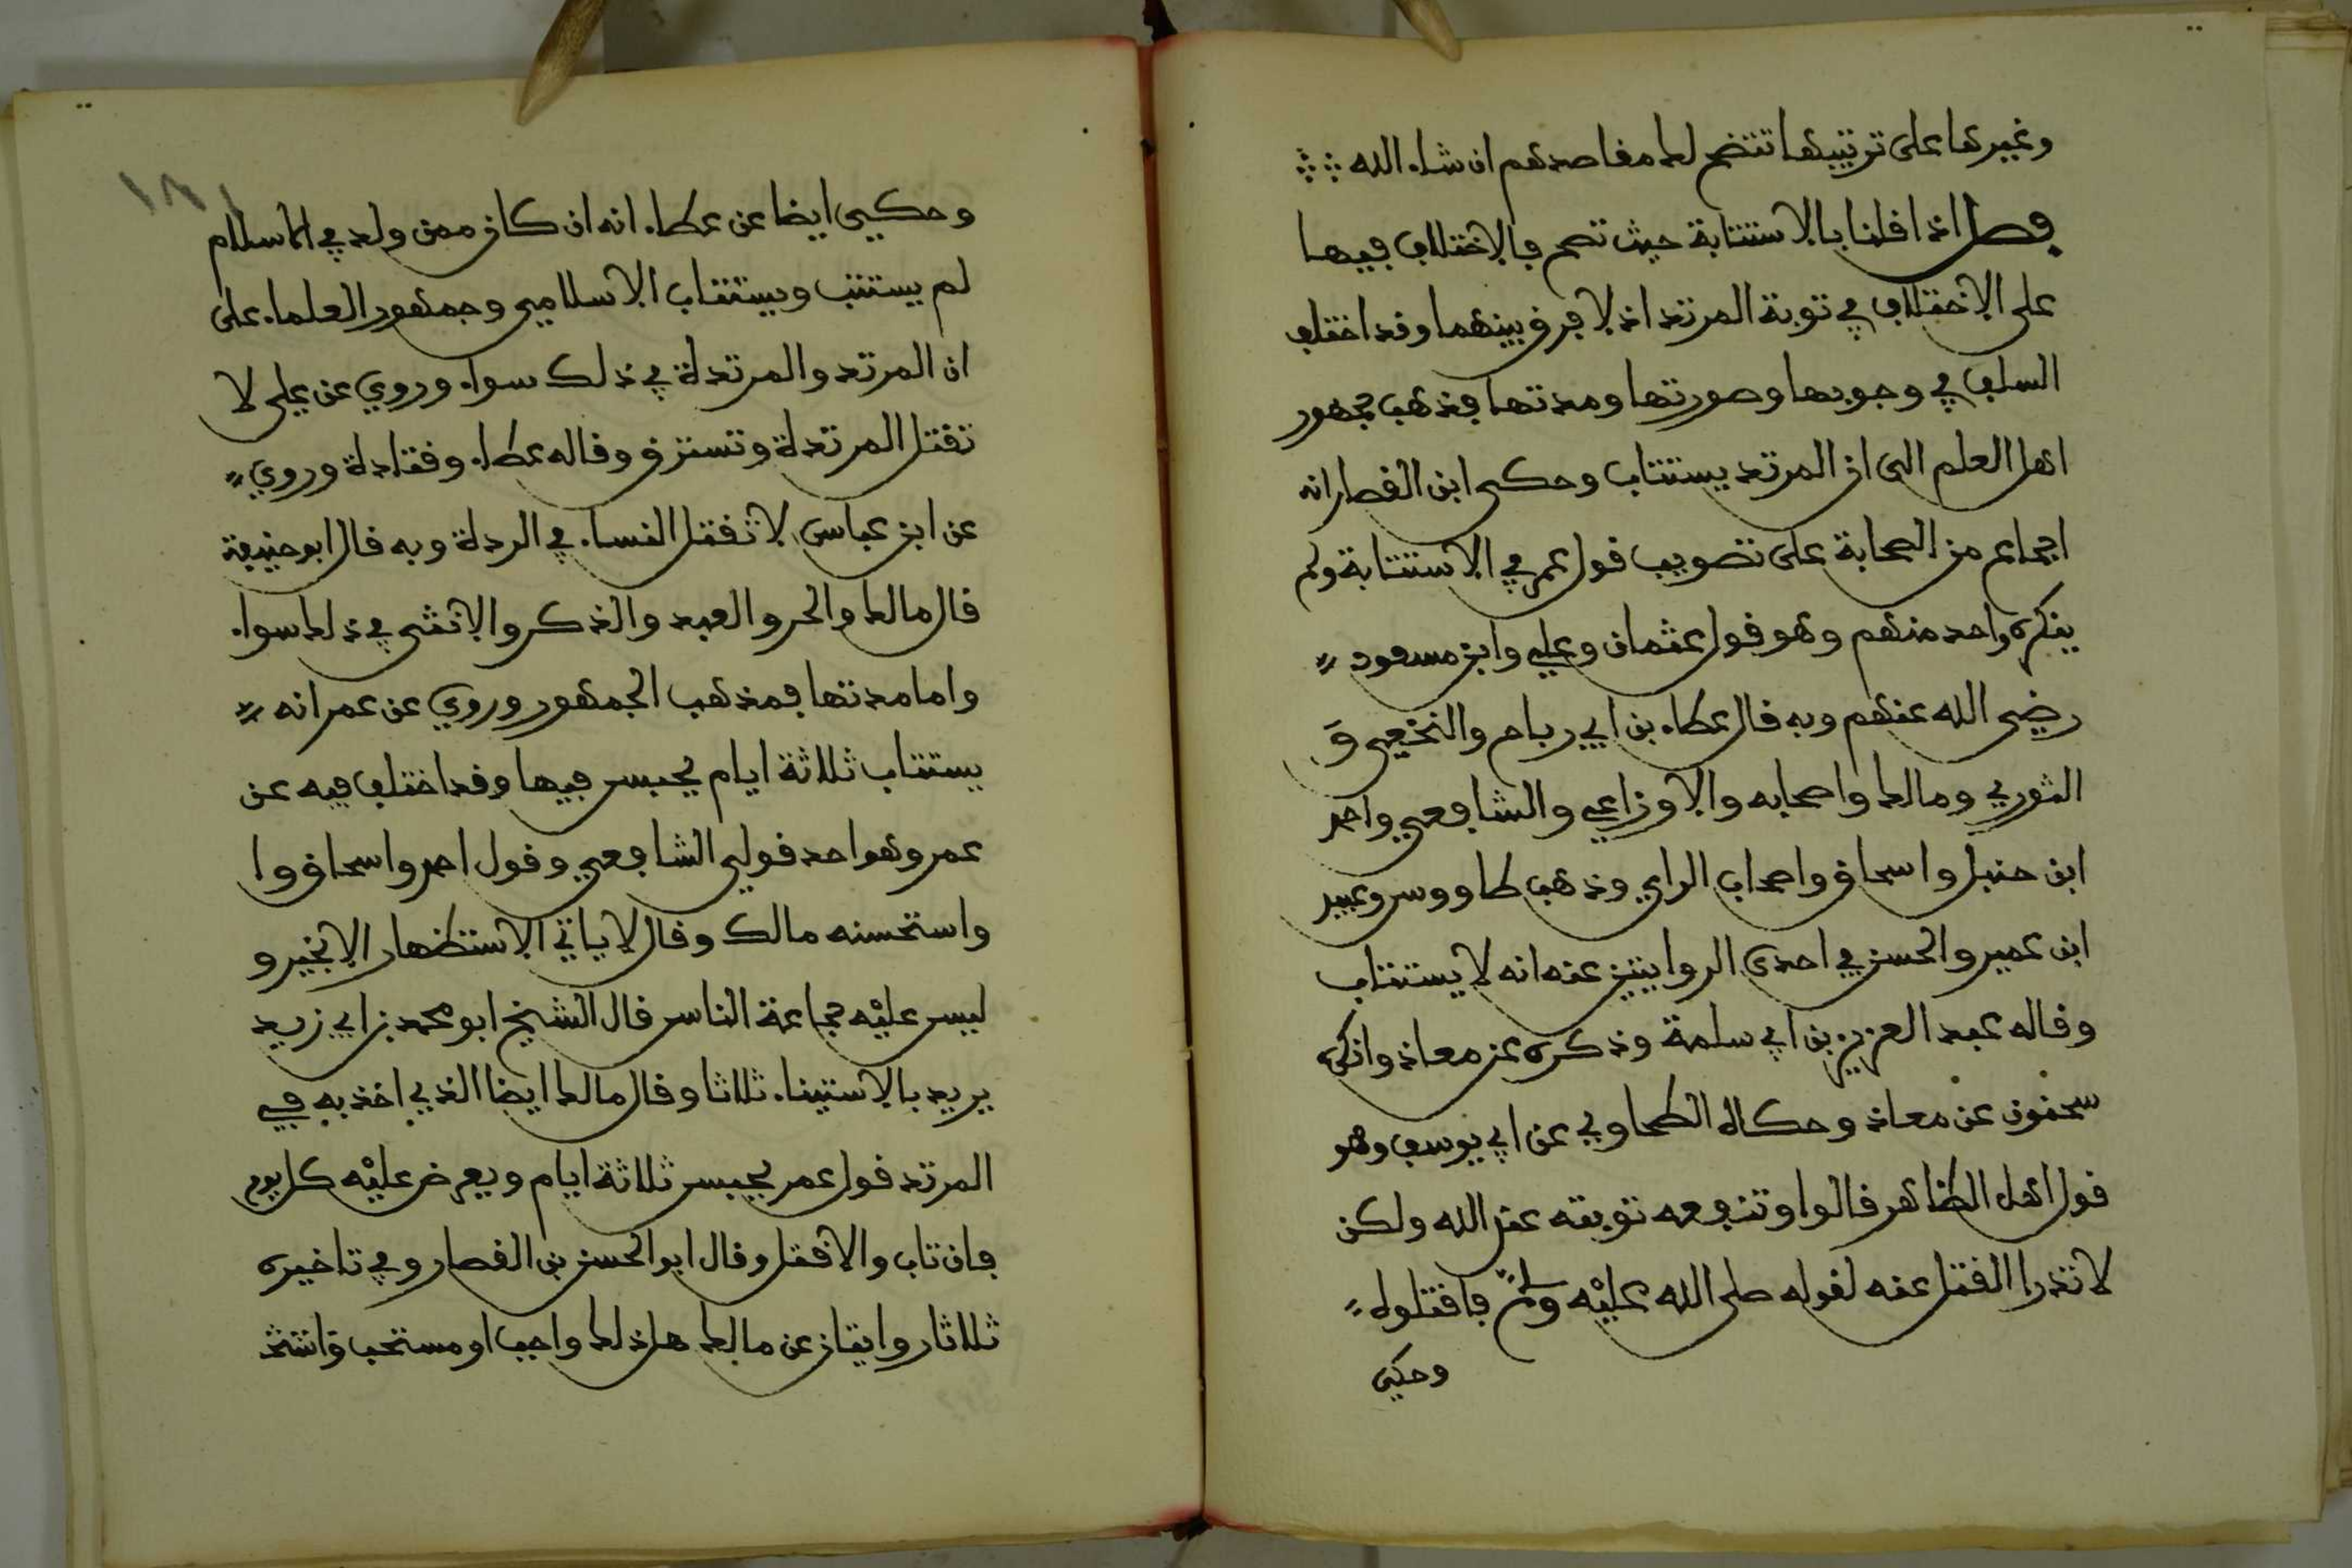 وغيرها على ترتيبها تتضح لك مقاصدهم ان شاء الله
فصل اذا قلنا بالاستتابة حيث تصح فالاختلاف فيها
على الاختلاف في توبة المرتد اذ لا فرق بينهما وقد اختلف
السلف في وجوبها وصورتها ومدتها فذهب جمهور
اهل العلم الى ان المرتد يستتاب وحكى ابن القصار انه
اجماع من الصحابة على تصويب قول عمر في الاستتابة ولم
ينكره واحد منهم وهو قول عثمان وعلي وابن مسعود
رضي الله عنهم وبه قال عطاء بن ابي رباح والنخعي و
الثوري ومالك واصحابه والاوزاعي والشافعي واحمد
ابن حنبل واسحاق واصحاب الراي وذهب طاووس وعبيد
ابن عمير والحسن في احدى الروايتين عنه انه لا يستتاب
وقاله عبد العزيز بن ابي سلمة وذكره عن معاذ وانكره
سحنون عن معاذ وحكاه الطحاوي عن ابي يوسف وهو
قول اهل الظاهر قالوا وتنفعه توبته عند الله ولكن
لا تدرا القتل عنه لقوله صلى الله عليه وسلم فاقتلوه
وحكي
١٨١
وحكي ايضا عن عطاء انه ان كان ممن ولد في الاسلام
لم يستتب ويستتاب الاسلامي وجمهور العلماء على
ان المرتد والمرتدة في ذلك سواء وروي عن علي لا
تقتل المرتدة وتسترق وقاله عطاء وقتادة وروي
عن ابن عباس لا تقتل النساء في الردة وبه قال ابو حنيفة
قال مالك والحر والعبد والذكر والانثى في ذلك سواء
واما مدتها فمذهب الجمهور وروي عن عمر انه
يستتاب ثلاثة ايام يحبس فيها وقد اختلف فيه عن
عمر وهو احد قولي الشافعي وقول احمد واسحاق وا
واستحسنه مالك وقال لا ياتي الاستظهار الا بخير و
ليس عليه جماعة الناس قال الشيخ ابو محمد بن ابي زيد
يريد بالاستيناء ثلاثا وقال مالك ايضا الذي اخذ به في
المرتد قول عمر يحبس ثلاثة ايام ويعرض عليه كل يوم
فان تاب والا قتل وقال ابو الحسن بن القصار وفي تاخيره
ثلاثا روايتان عن مالك هل ذلك واجب او مستحب